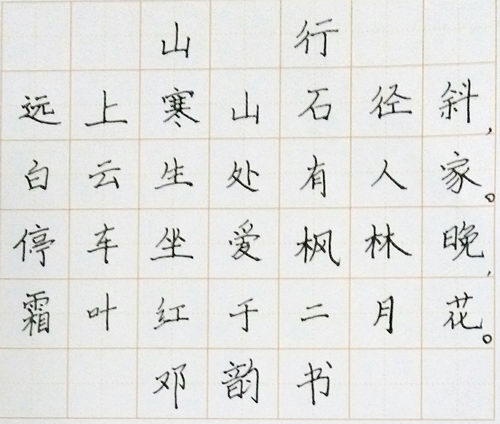 山行
远上寒山石径斜，
白云生处有人家。
停车坐爱枫林晚，
霜叶红于二月花。
邓韵书